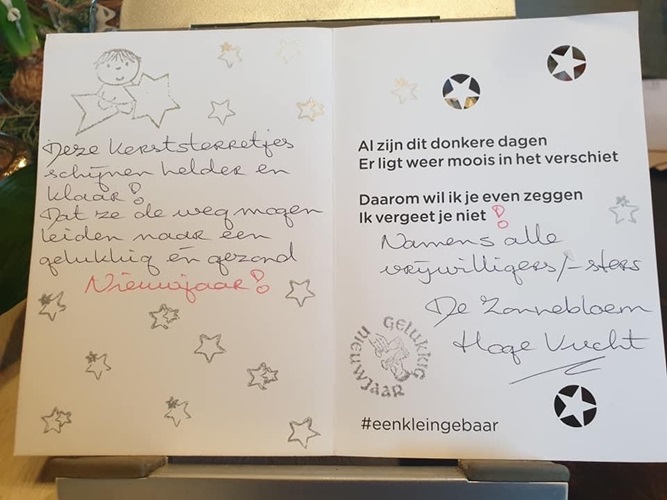 Deze kerststerretjes
schijnen helder en
klaar!
Dat ze de weg mogen
leiden naar een
gelukkig én gezond
Nieuwjaar!
Al zijn dit donkere dagen
Er ligt weer moois in het verschiet
Daarom wil ik je even zeggen
Ik vergeet je niet!
Namens alle
vrijwilligers/-sters
De Zonnebloem
Hoge Vucht
GELUKKIG
NIEUWJAAR
#eenkleingebaar